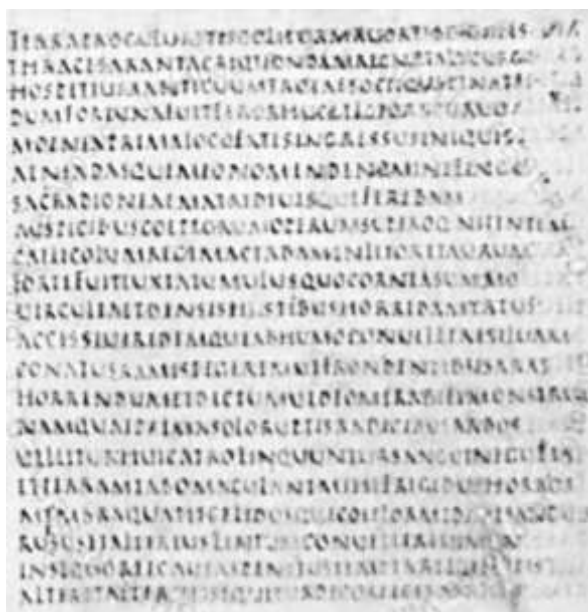 TERRAPROCUL COLITUR
ARANTACRIQUONDAM
HOSPITIUMANTICUUMTROIAESOCIIQUEPENATES
DUMFORTUNAFUITFERORHUCETLITORECURUO
MOENIAPRIMALOCOFATISINGRESSUSINIQUIS
AENEADASQUEMEONOMENDENOMINE
SACRADIONAEAEMATRIDIUISQUEFEREBAM
COEPTORUMOPERUMSUPEROQUENITENTEM
CAELICOLUMREGIMACTABAMINLITORETAURUM
FORTEFUITIUXTATUMULUSQUOCORNEASUMMO
UIRGULTAETDENSISHASTILIBUSHORRIDA
ACCESSIUIRIDEMQUEABHUMOCONUELLERESILUAM
CONATUSRAMISTEGEREMUTFRONDENTIBUSARAS
HORRENDUMETDICTUMUIDEOMIRABILEMONSTRUM
NAMQUAEPRIMASOLORUPTISRADICIBUSARBOS
UELLITURHUICATROLINQUUNTURSANGUINEGUTTAE
ETTERRAMTABOMACULANTMIHIFRIGIDUSHORROR
MEMBRAQUATITGELIDUSQUECOITFORMIDINESANGUIS
RURSUSETALTERIUSLENTUMCONUELLERE
INSEQUORETCAUSASPENITUSTEMPTARE
SEQUITURDECORTICE